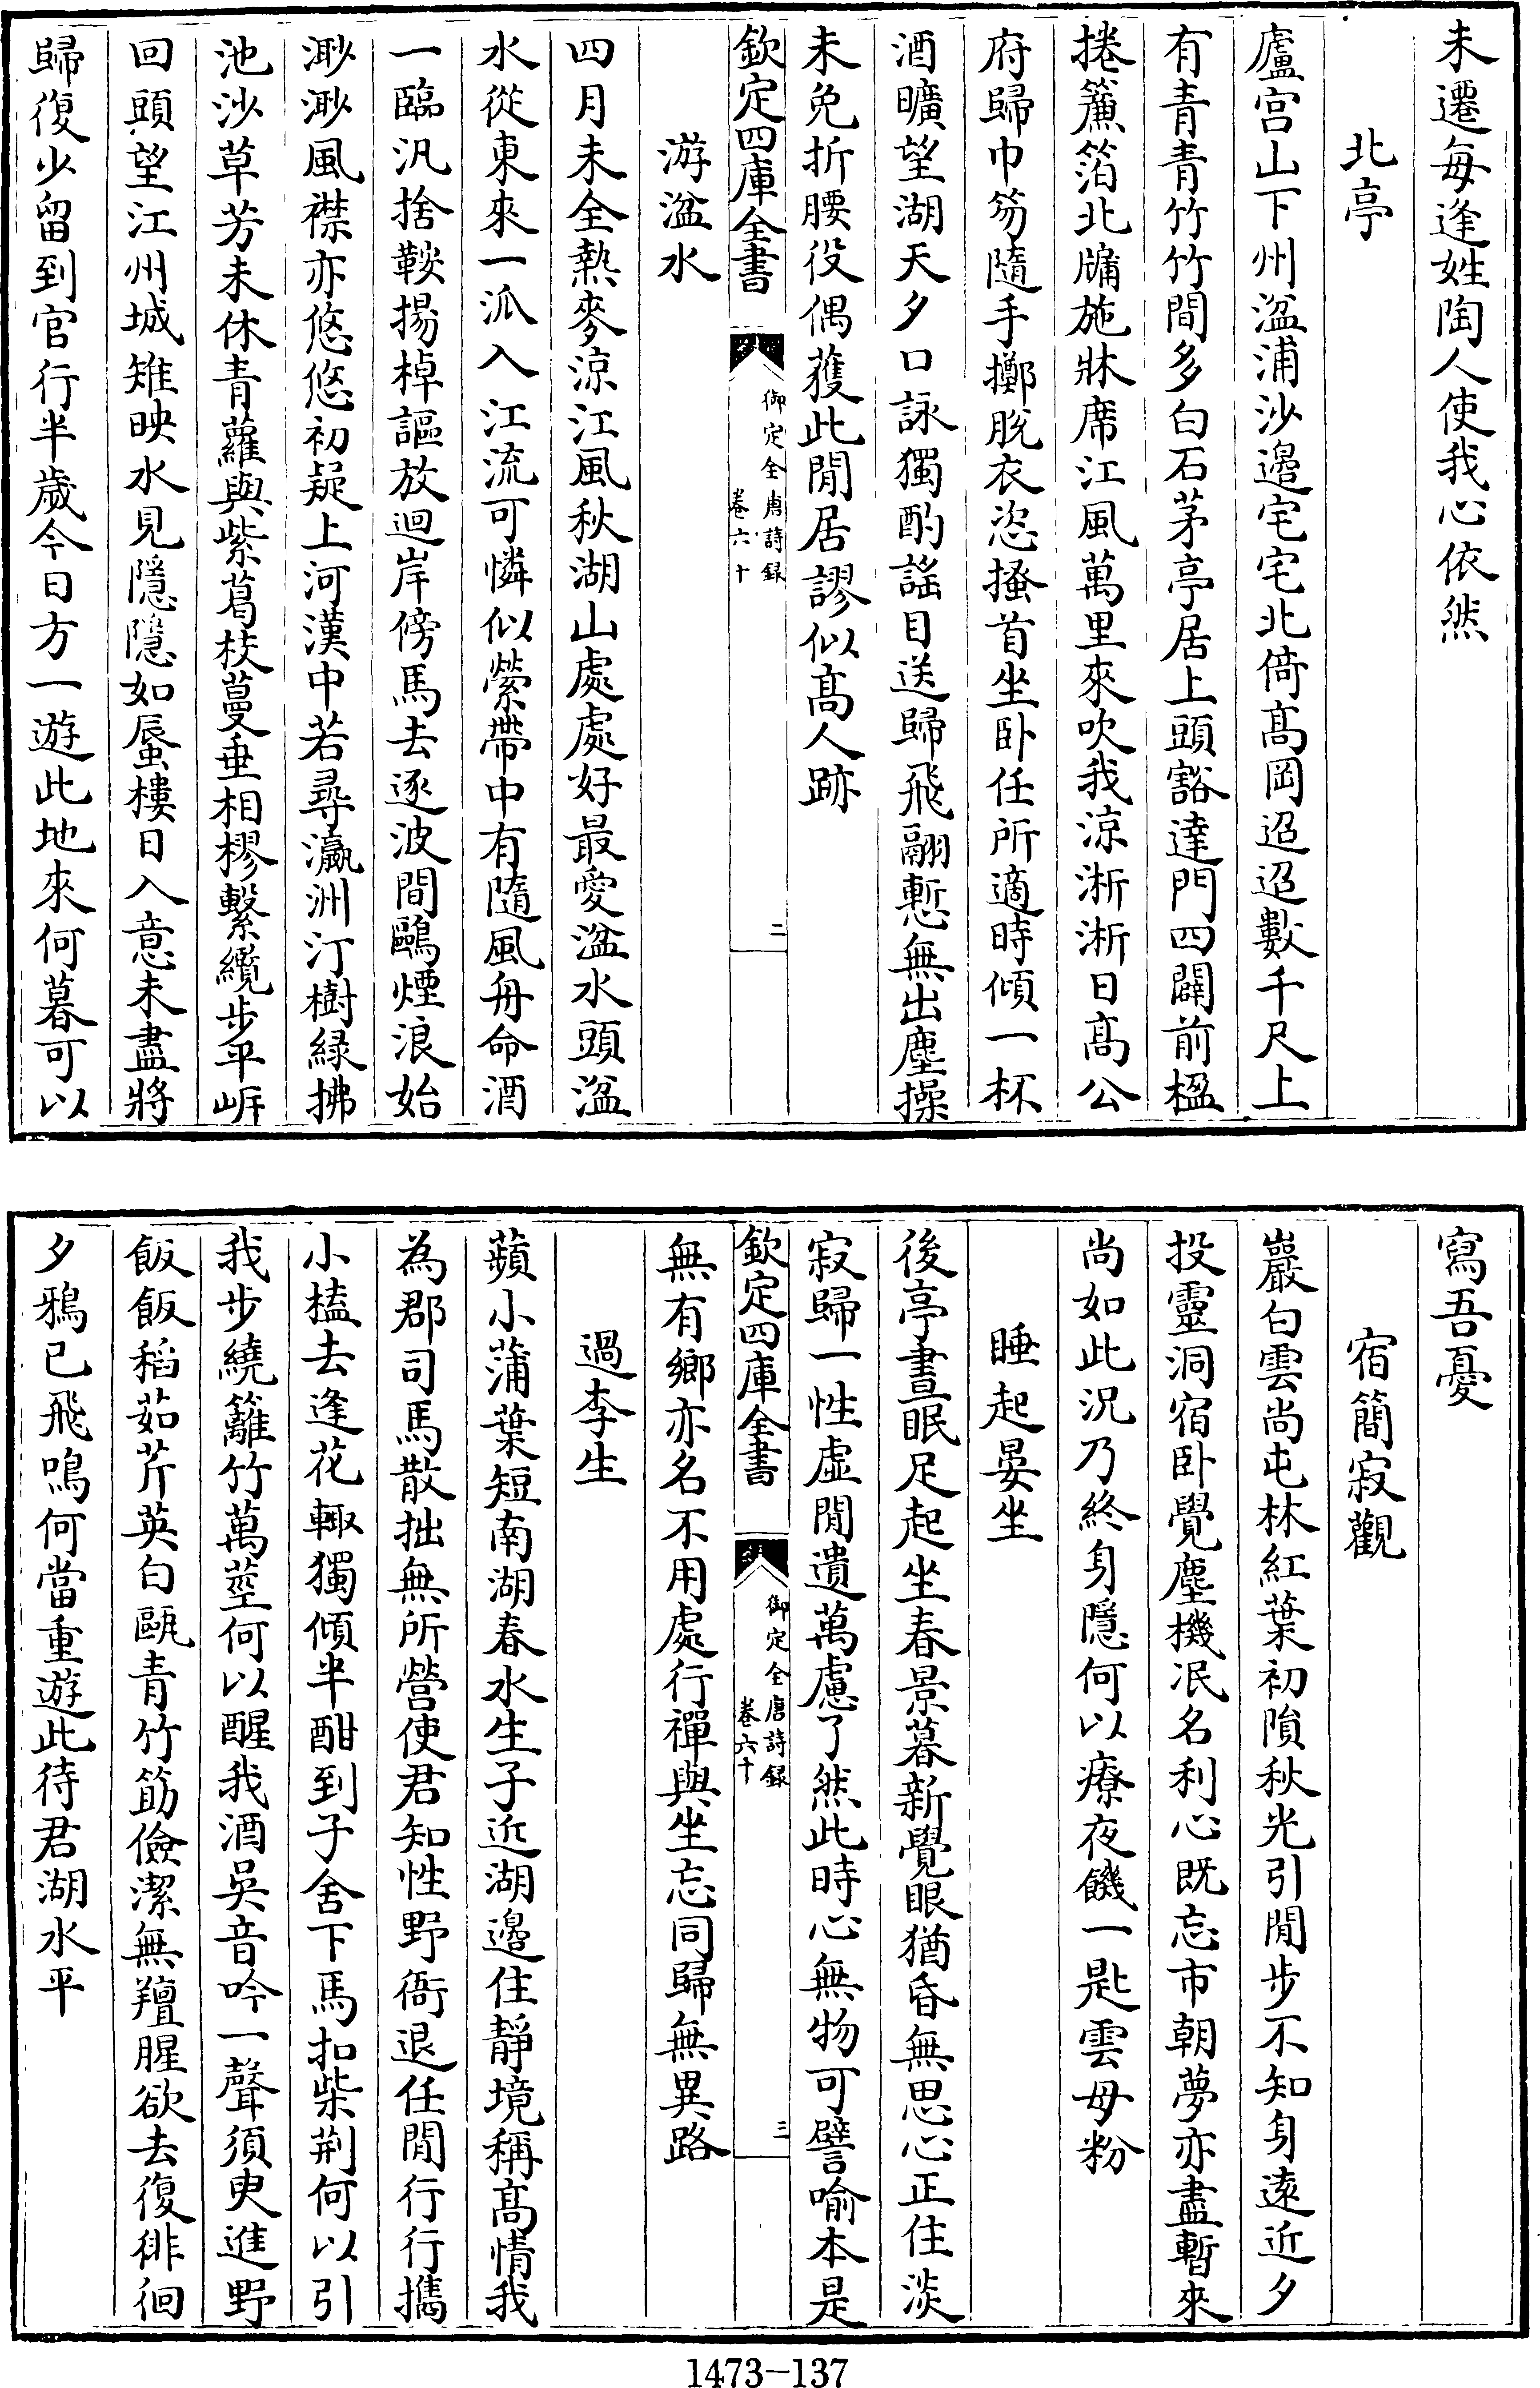 未遷每逢姓陶人使我心依然
北亭
廬宫山下州湓浦沙邉宅宅北倚髙岡迢迢數千尺上
有青青竹竹間多白石茅亭居上頭豁達門四闢前楹
捲簾箔北牖施牀席江風萬里來吹我涼淅淅日髙公
府歸巾笏隨手擲脫衣恣搔首坐卧任所適時傾一杯
酒曠望湖天夕口詠獨酌謠目送歸飛翮慙無出塵操
未免折腰役偶獲此閒居謬似髙人跡
欽定四庫全書
御定全唐詩録
卷六十
二
游湓水
四月未全熱麥涼江風秋湖山處處好最愛湓水頭湓
水從東來一派入江流可憐似縈帶中有隨風舟命酒
一臨汎捨鞍揚棹謳放迴岸傍馬去逐波間鷗煙浪始
渺渺風襟亦悠悠初疑上河漢中若尋瀛洲汀樹緑拂
池沙草芳未休青蘿與紫葛枝蔓垂相樛繫纜步平岍
回頭望江州城雉映水見隱隱如蜃樓日入意未盡將
歸復少留到官行半歲今日方一遊此地來何暮可以
寫吾憂
宿簡寂觀
巖白雲尚屯林紅葉初隕秋光引閒步不知身逺近夕
投靈洞宿卧覺塵機泯名利心既忘市朝夢亦盡暫來
尚如此況乃終身隱何以療夜饑一匙雲母粉
睡起晏坐
後亭晝眠足起坐春景暮新覺眼猶昏無思心正住淡
寂歸一性虛閒遺萬慮了然此時心無物可譬喻本是
欽定四庫全書
御定全唐詩録
卷六十
三
無有鄉亦名不用處行禪與坐忘同歸無異路
過李生
蘋小蒲葉短南湖春水生子近湖邉住靜境稱髙情我
為郡司馬散拙無所營使君知性野衙退任閒行行攜
小榼去逢花輙獨傾半酣到子舍下馬扣柴荆何以引
我步繞籬竹萬莖何以醒我酒吳音吟一聲須臾進野
飯飯稻茹芹英白甌青竹筯儉潔無羶腥欲去復徘徊
夕鴉已飛鳴何當重遊此待君湖水平
1473-137